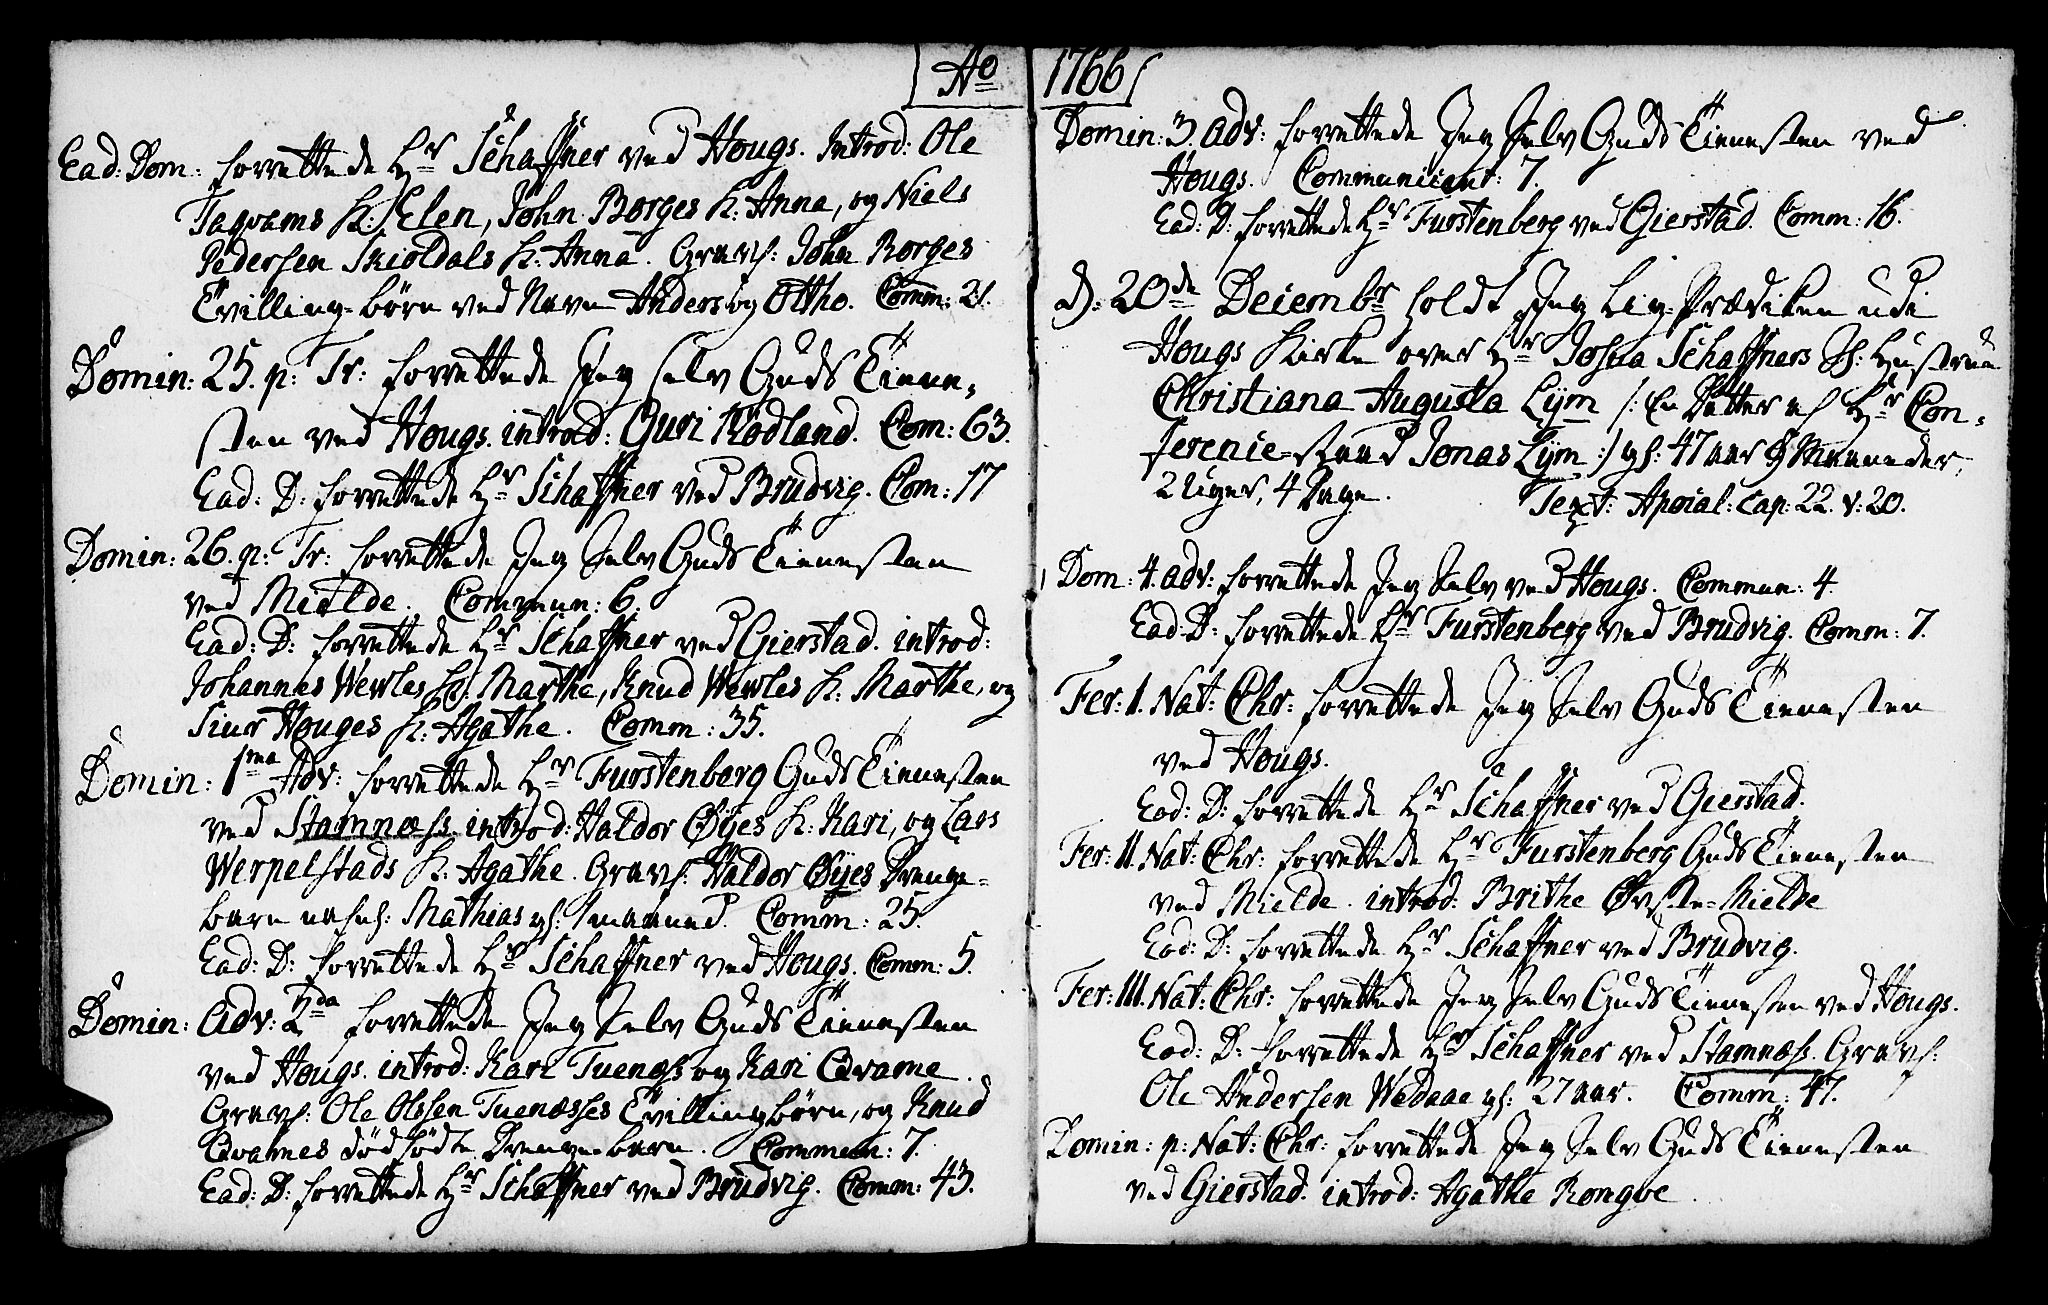 Ao 1766
Ead: Dom: forrettede Hr Schaffner ved Hougs. Introd: Ole
Taqvams K: Elen, John Borges K: Anna, og Niels
Pedersen Skioldals K: Anna. Gravf: John Borges
Tvilling-børn ved Navn Anders og Ottho. Comm: 21.
Domin: 25. p: Tr: forrettede Jeg selv Guds Tiene-
sten ved Hougs. introd: Guri Rödland. Com: 63.
Ead: D: forrettede Hr Schaffner ved Brudvig. Com: 17
Domin: 26. p: Tr: forrettede Jeg Selv Guds Tienesten
ved Mielde. Commun: 6.
Ead: D: forrettede Hr Schaffner ved Gierstad. introd:
Johannes Wevles K: Marthe, Knud Wevles K: Marthe, og
Siur Houges K: Agathe. Comm: 35.
Domin: 1ma Adv: forrettede Hr Furstenberg Guds Tienesten
ved Stamnæss. introd: Haldor Øÿes K: Kari, og Lars
Werpelstads K: Agathe. Gravf: Haldor Øÿes Drenge-
barn nafnl: Mathias gl: 1 maaned. Comm: 25.
Ead: D: forrettede Hr Schaffner ved Hougs. Comm: 5.
Domin: Adv: 2da forrettede Jeg Selv Guds Tienesten
ved Hougs. introd: Kari Tuenæss og Kari Qvame.
Gravf: Ole Olssen Tuenæsses Tvillingbørn, og Knud
Qvames dödfödte Drenge-barn. Commun: 7.
Ead: D: forrettede Hr Schaffner ved Brudvig. Comm: 43.
Domin: 3. Adv: forrettede Jeg Selv Guds Tienesten ved
Hougs. Communicant: 7.
Ead: D: forrettede Hr Furstenberg ved Gierstad. Comm: 16.
D: 20de Decembr holdt Jeg Lig-Prædiken udi
Hougs Kirke over Hr Josua Schaffners Sl: Hustrue
Christiana Augusta Lÿm /: En Datter af Hr Con-
ferenice-Raad Jonas Lÿm :/ gl: 47 aar 9 Maaneder,
2 Uger, 4 Dage. Text: Apocal: cap: 22. v: 20.
Dom: 4. Adv: forrettede Jeg Selv ved Hougs. Commun: 4.
Ead: D: forrettede Hr Furstenberg ved Brudvig. Comm: 7.
Fer: I. Nat: Chr: forrettede Jeg Selv Guds Tienesten
ved Hougs.
Ead: D: forrettede Hr Schaffner ved Gierstad.
Fer: II. Nat: Chr: forrettede Hr Furstenberg Guds Tienesten
ved Mielde. introd: Brithe Øvste-Mielde
Ead: D: forrettede Hr Schaffner ved Brudvig.
Fer: III. Nat: Chr: forrettede Jeg Selv Guds Tienesten ved Hougs.
Ead: D: forrettede Hr Schaffner ved Stamnæss. Gravf:
Ole Andersen Wedaae gl: 27 aar. Comm: 47.
Domin: p: Nat: Chr: forrettede Jeg Selv Guds Tienesten
ved Gierstad. introd: Agatha Rongve